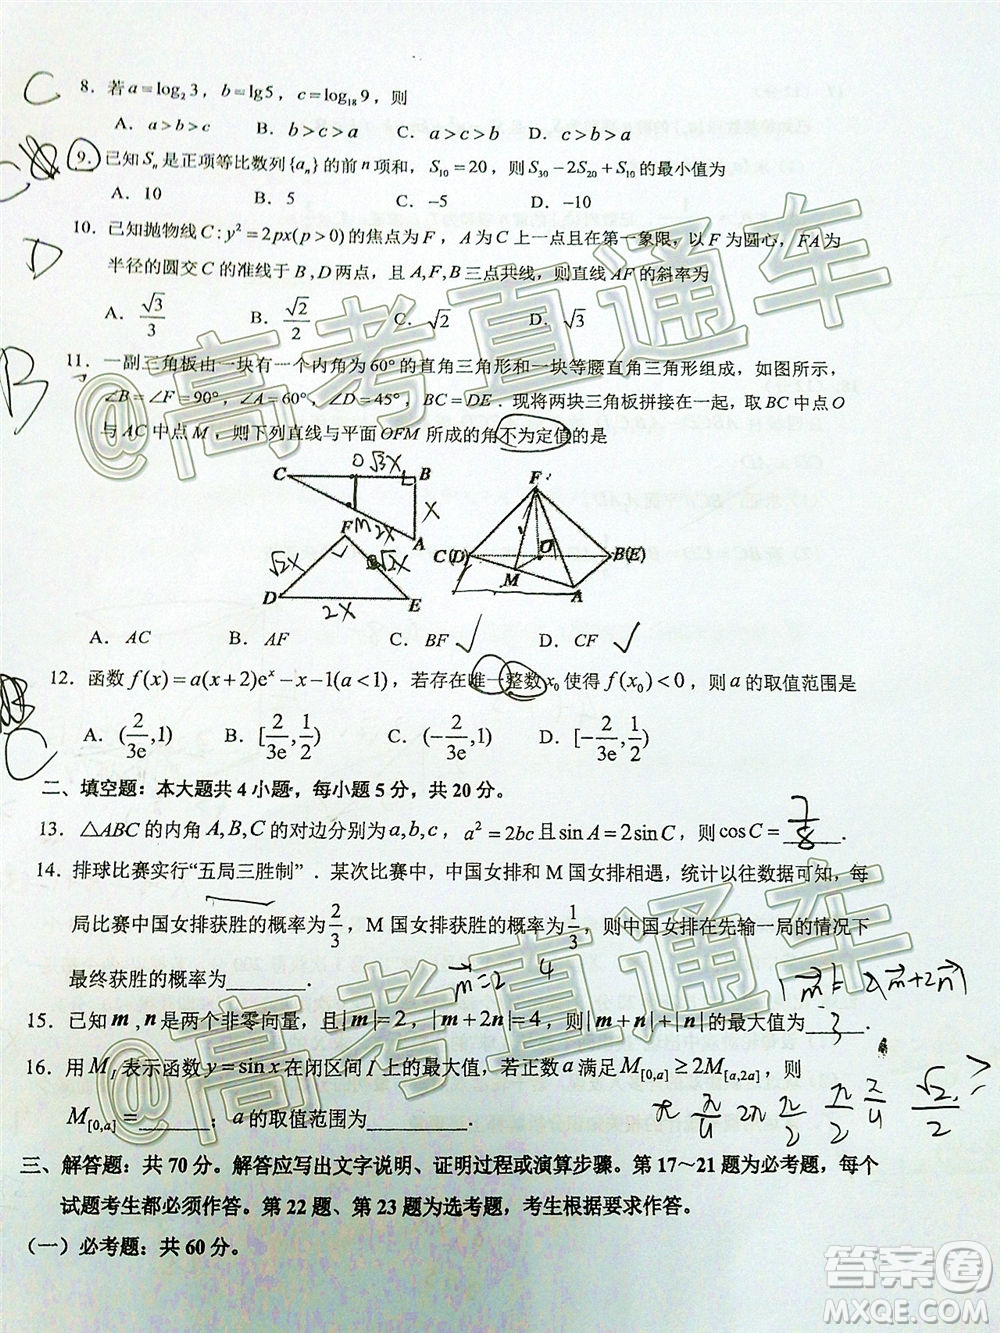 C
8．若 a＝log₂3，b＝lg5，c＝log₁₈9，则
A．a＞b＞c B．b＞c＞a C．c＞a＞b D．c＞b＞a
C
9．已知 Sₙ 是正项等比数列{aₙ}的前 n 项和，S₁₀＝20，则 S₃₀－2S₂₀＋S₁₀ 的最小值为
A．10 B．5 C．－5 D．－10
D
10．已知抛物线 C：y²＝2px(p＞0) 的焦点为 F，A 为 C 上一点且在第一象限，以 F 为圆心，FA 为
半径的圆交 C 的准线于 B，D 两点，且 A，F，B 三点共线，则直线 AF 的斜率为
A．√3/3 B．√2/2 C．√2 D．√3
B
11．一副三角板由一块有一个内角为 60° 的直角三角形和一块等腰直角三角形组成，如图所示，
∠B＝∠F＝90°，∠A＝60°，∠D＝45°，BC＝DE．现将两块三角板拼接在一起，取 BC 中点 O
与 AC 中点 M，则下列直线与平面 OFM 所成的角不为定值的是
C O √3x B
M 2x x A
F √2x √2x
D 2x E
F
C(D) O B(E)
M A
A．AC B．AF C．BF √ D．CF √
12．函数 f(x)＝a(x＋2)eˣ－x－1(a＜1)，若存在唯一整数 x₀ 使得 f(x₀)＜0，则 a 的取值范围是
C
A．(2/3e,1) B．[2/3e,1/2) C．(－2/3e,1) D．[－2/3e,1/2)
二、填空题：本大题共 4 小题，每小题 5 分，共 20 分。
13．△ABC 的内角 A,B,C 的对边分别为 a,b,c，a²＝2bc 且 sinA＝2sinC，则 cosC＝ 7/8 ．
14．排球比赛实行“五局三胜制”．某次比赛中，中国女排和 M 国女排相遇，统计以往数据可知，每
局比赛中国女排获胜的概率为 2/3，M 国女排获胜的概率为 1/3，则中国女排在先输一局的情况下
最终获胜的概率为________．
m＝2 4 |m|＝2|m+2n|
15．已知 m，n 是两个非零向量，且|m|＝2，|m＋2n|＝4，则|m＋n|＋|n|的最大值为 3 ．
16．用 M_I 表示函数 y＝sinx 在闭区间 I 上的最大值，若正数 a 满足 M_[0,a] ≥ 2M_[a,2a]，则
M_[0,a]＝________；a 的取值范围为________．
π π/4 2π π/2 π/2 π/4 √2/2 ≥
三、解答题：共 70 分。解答应写出文字说明、证明过程或演算步骤。第 17～21 题为必考题，每个
试题考生都必须作答。第 22 题、第 23 题为选考题，考生根据要求作答。
（一）必考题：共 60 分。
@高考直通车
@高考直通车
答案圈
MXQE.COM